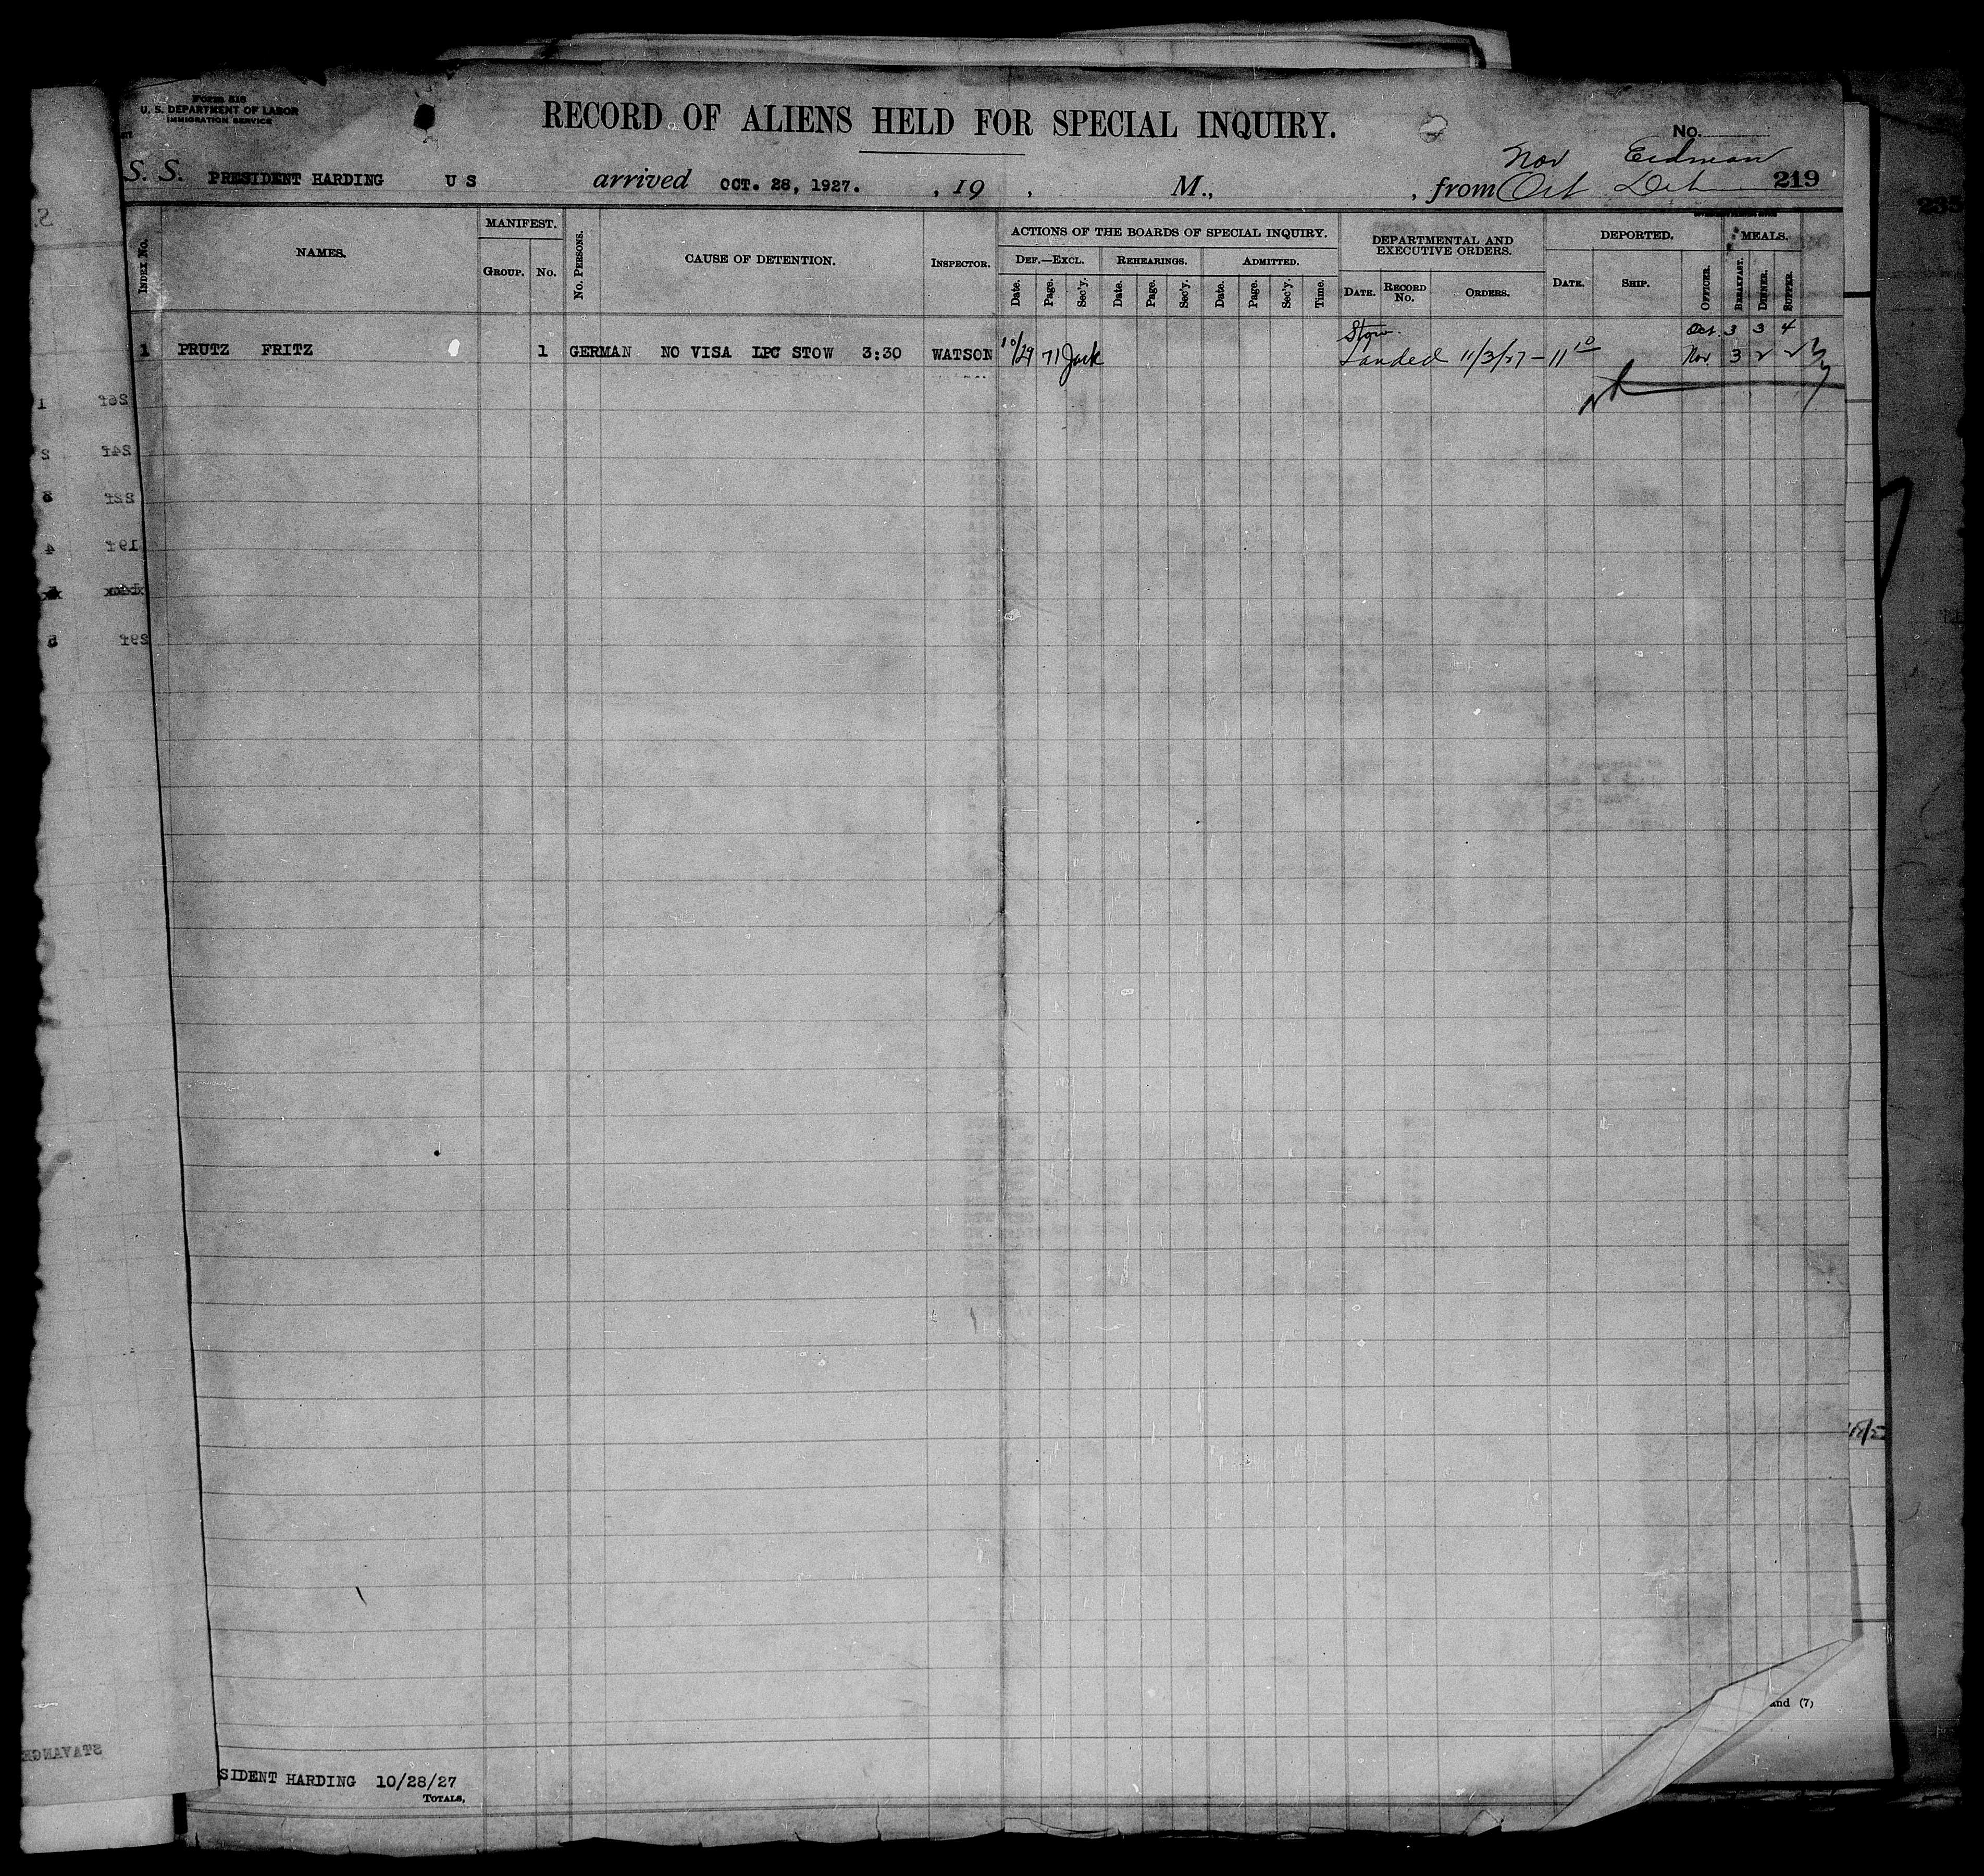 Form 518
U. S. DEPARTMENT OF LABOR
IMMIGRATION SERVICE
RECORD OF ALIENS HELD FOR SPECIAL INQUIRY.
No.
Nov Erdman
S. S. PRESIDENT HARDING U S arrived OCT. 28, 1927. , 19 , M., , from Oct 219
235
INDEX No.
NAMES.
MANIFEST.
GROUP. No.
No. PERSONS.
CAUSE OF DETENTION.
INSPECTOR.
ACTIONS OF THE BOARDS OF SPECIAL INQUIRY.
DEF.—EXCL. REHEARINGS. ADMITTED.
Date. Page. Sec'y. Date. Page. Sec'y. Date. Page. Sec'y. Time.
DEPARTMENTAL AND
EXECUTIVE ORDERS.
DATE. RECORD No. ORDERS.
DEPORTED.
DATE. SHIP. OFFICER.
MEALS.
BREAKFAST. DINNER. SUPPER.
Stow. Oct 3 3 4
1 PRUTZ FRITZ 1 GERMAN NO VISA LPC STOW 3:30 WATSON 10/29 71 Jack Landed 11/3/27 - 11 10 Nov. 3 2 2
1 26f
2 24f
3 22f
4 19f
5 29f
and (7)
STAVANGE
SIDENT HARDING 10/28/27
TOTALS,